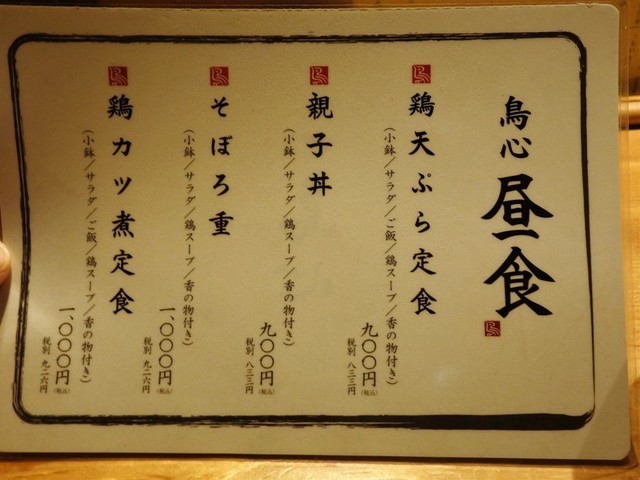 鳥心 昼食
鶏天ぷら定食
(小鉢/サラダ/ご飯/鶏スープ/香の物付き)
九〇〇円(税込)
税別 八三三円
親子丼
(小鉢/サラダ/鶏スープ/香の物付き)
九〇〇円(税込)
税別 八三三円
そぼろ重
(小鉢/サラダ/鶏スープ/香の物付き)
一、〇〇〇円(税込)
税別 九二六円
鶏カツ煮定食
(小鉢/サラダ/ご飯/鶏スープ/香の物付き)
一、〇〇〇円(税込)
税別 九二六円